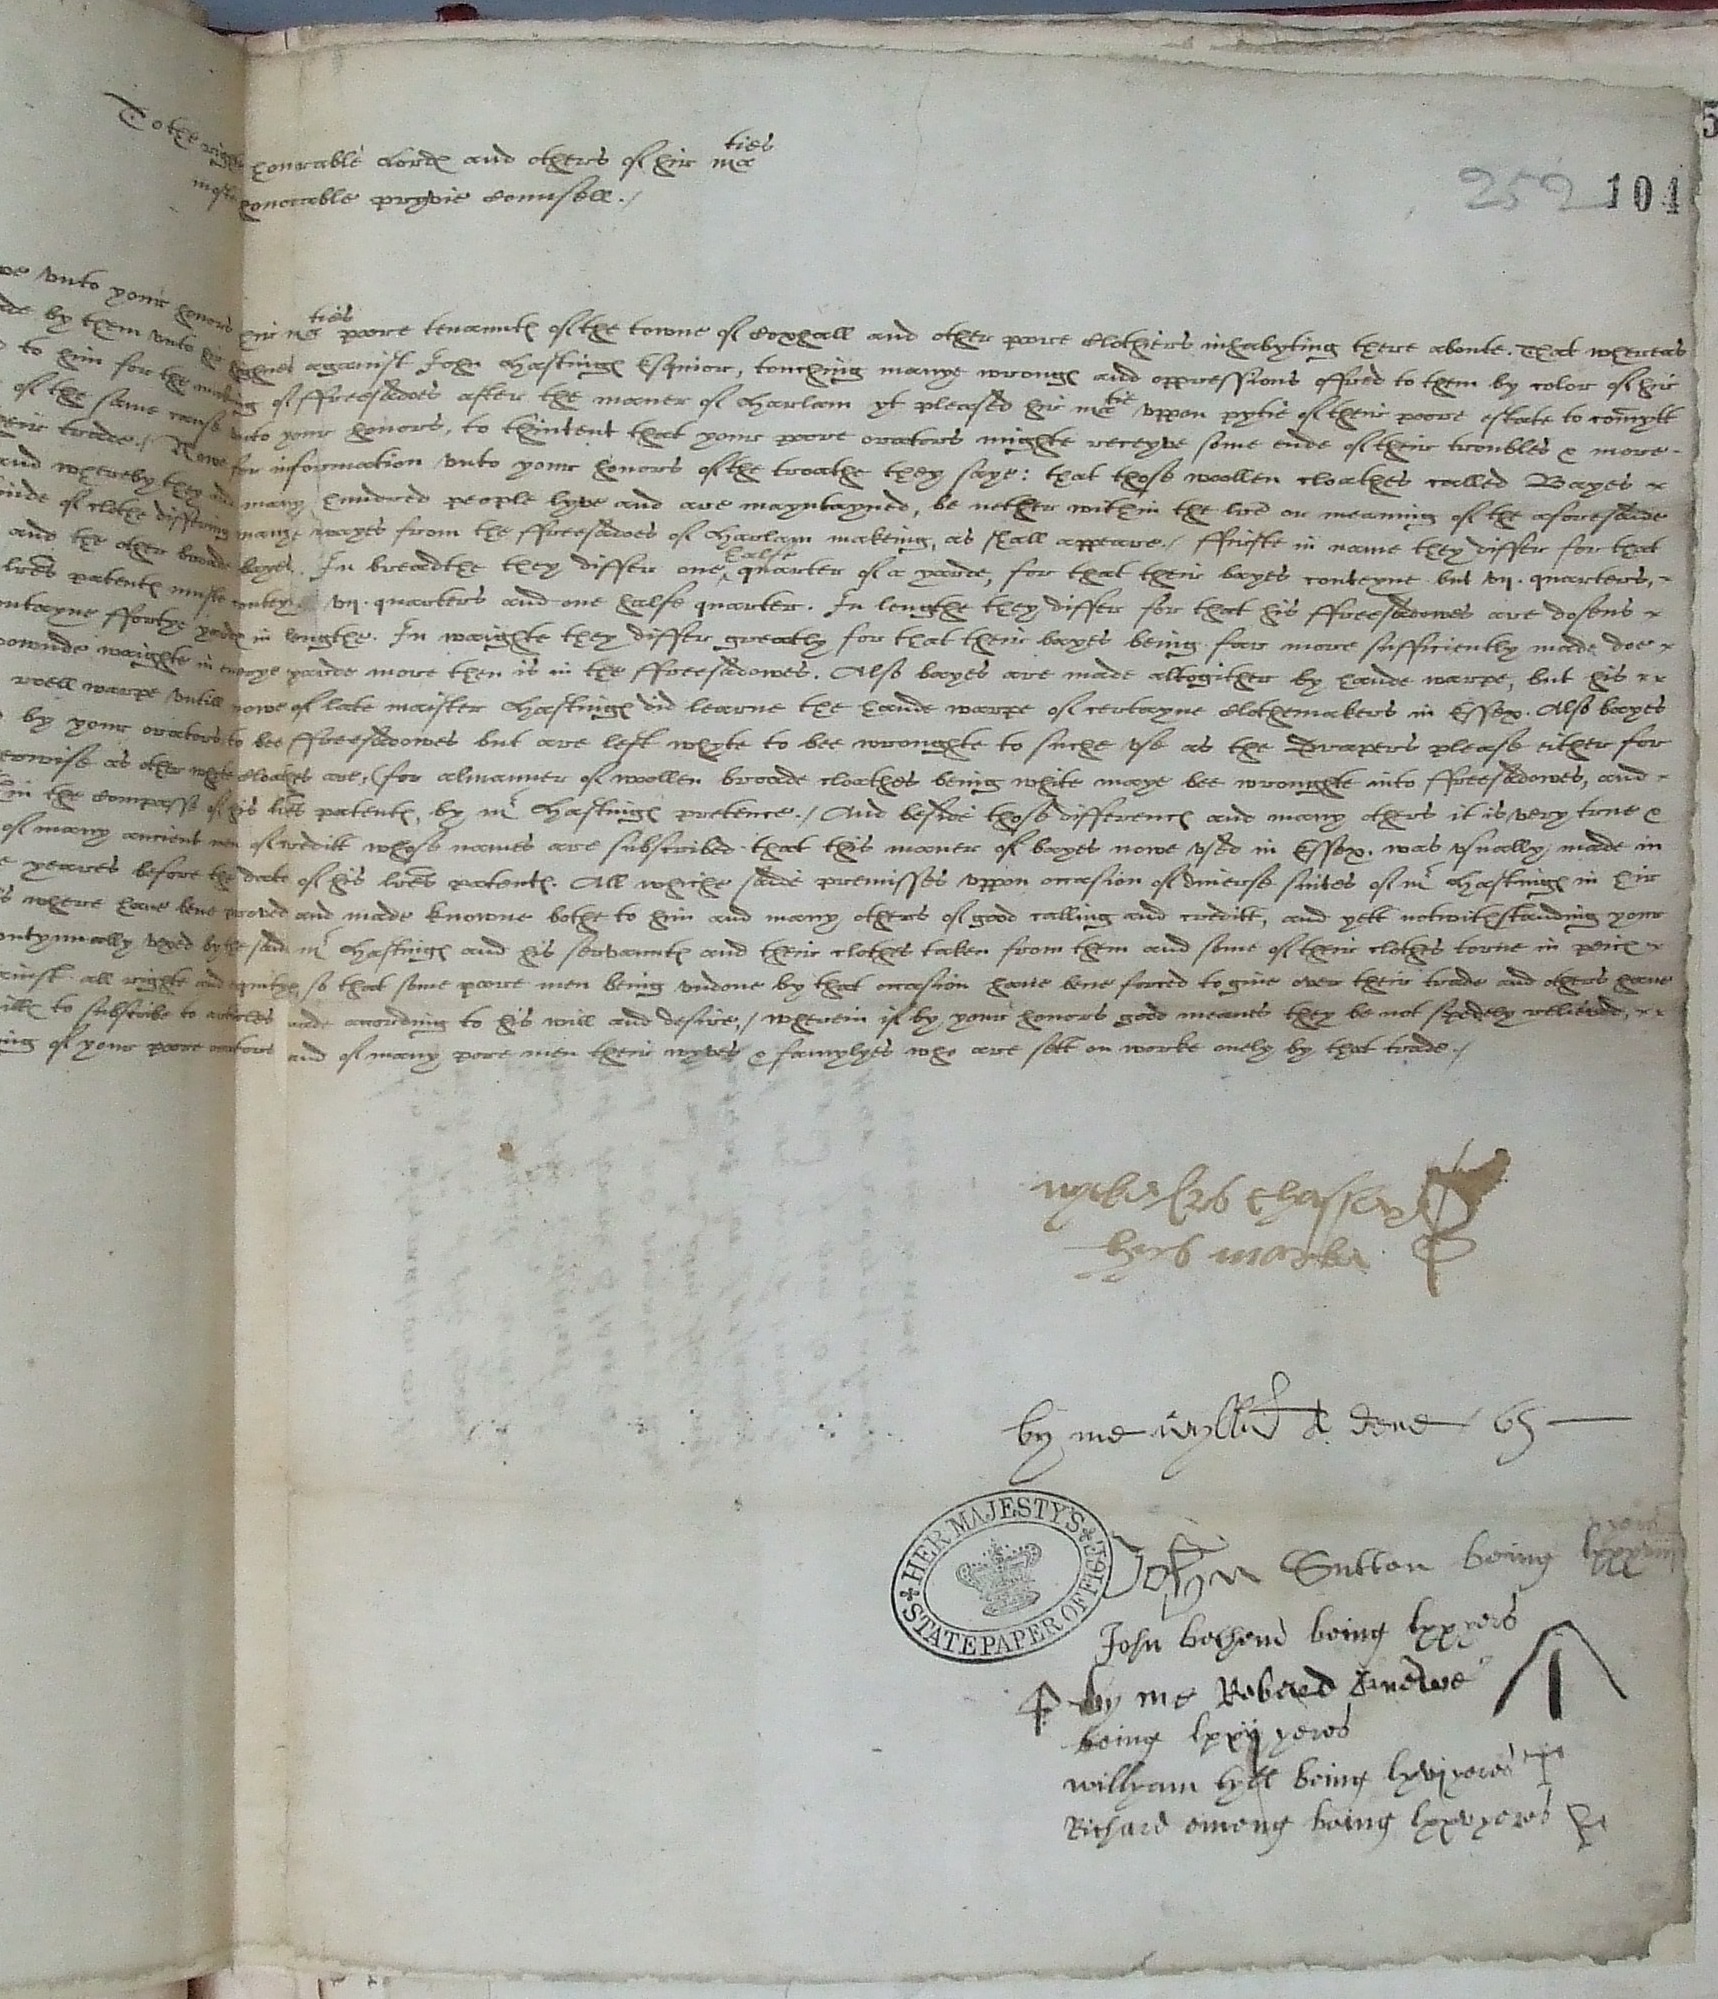 To the right honorable Lordes and others of hir maties
moste honorable pryvie Counsell./
252 104
ve vnto your honors hir maties poore tenauntes of the towne of Coxhall and other poore Clothiers inhabyting there aboute. That whereas
ade by them vnto hir highnes against John Hastinges Esquior, touching manye wronges and oppressions offred to them by color of hir
to him for the making of ffreesadoes after the maner of Harlam yt pleased hir matie vppon pytie of their poore estate to comytt
of the same cause vnto your honors, to thintent that your poore orators mighte receyve some ende of their troubles & more
heir trade./ Nowe for information vnto your honors of the troathe they saye: that those woollen cloathes called Bayes
and whereby they and many hundred people lyve and are mayntayned, be nether within the lre or meaning of the aforesaide
inde of clothe differing manye wayes from the ffreesadoes of Harlam makeing, as shall appeare./ ffirste in name they differ for that
and the other broade bayes. In breadthe they differ one halfe quarter of a yarde, for that their bayes conteyne but vij. quarters,
lres patentes muste conteyne vij. quarters and one halfe quarter. In lengthe they differ for that his ffreesadowes are dosens
ontayne ffortye yardes in lengthe. In waighte they differ greatly for that their bayes being far more sufficiently made doe
pownde waighte in everye yarde more then is in the ffreesadowes. Also bayes are made altogither by hande warpe, but his
well warpe vntill nowe of late maister Hastinges did learne the hande warpe of certayne Clothemakers in Essex. Also bayes
by your orators to bee ffreesadowes but are left whyte to bee wroughte to suche vse as the Drapers please either for
erwise as other white Cloathes are, (for almanner of wollen broade cloathes being white maye bee wroughte into ffreesadowes, and
in the Compasse of his lres patentes, by mr Hastinges pretence./ And beside those differences and many others it is very true &
of many ancient men of creditt whose names are subscribed that this maner of bayes nowe vsed in Essex. was vsually made in
yeares before the date of his lres patentes. All whiche saide premisses vppon occasion of diuerse suites of mr Hastinges in hir
s where haue bene proved and made knowne bothe to him and many others of good calling and creditt, and yett notwithstanding your
ontynually vexed by the said mr Hastinges and his servauntes and their clothes taken from them and some of their clothes torne in peices
ainst all righte and equitye, so that some poore men being vndone by that occasion haue bene forced to giue over their trade and others haue
to subscribe to articles made according to his will and desire,/ wherein if by your honors good meanes they be not spedely relieved,
ing of your poore orators and of many pore men their wyves & famylyes who are sett on worke onely by that trade./
hys marke
by me Wyllm A dene 65
HER MAJESTY'S STATE PAPER OFFICE
John Sutton being
John being lxx yers
by me Roberd
being lxxij yeres
Willyam Hyll being lxvj yeres
Richard being lxxv yeres